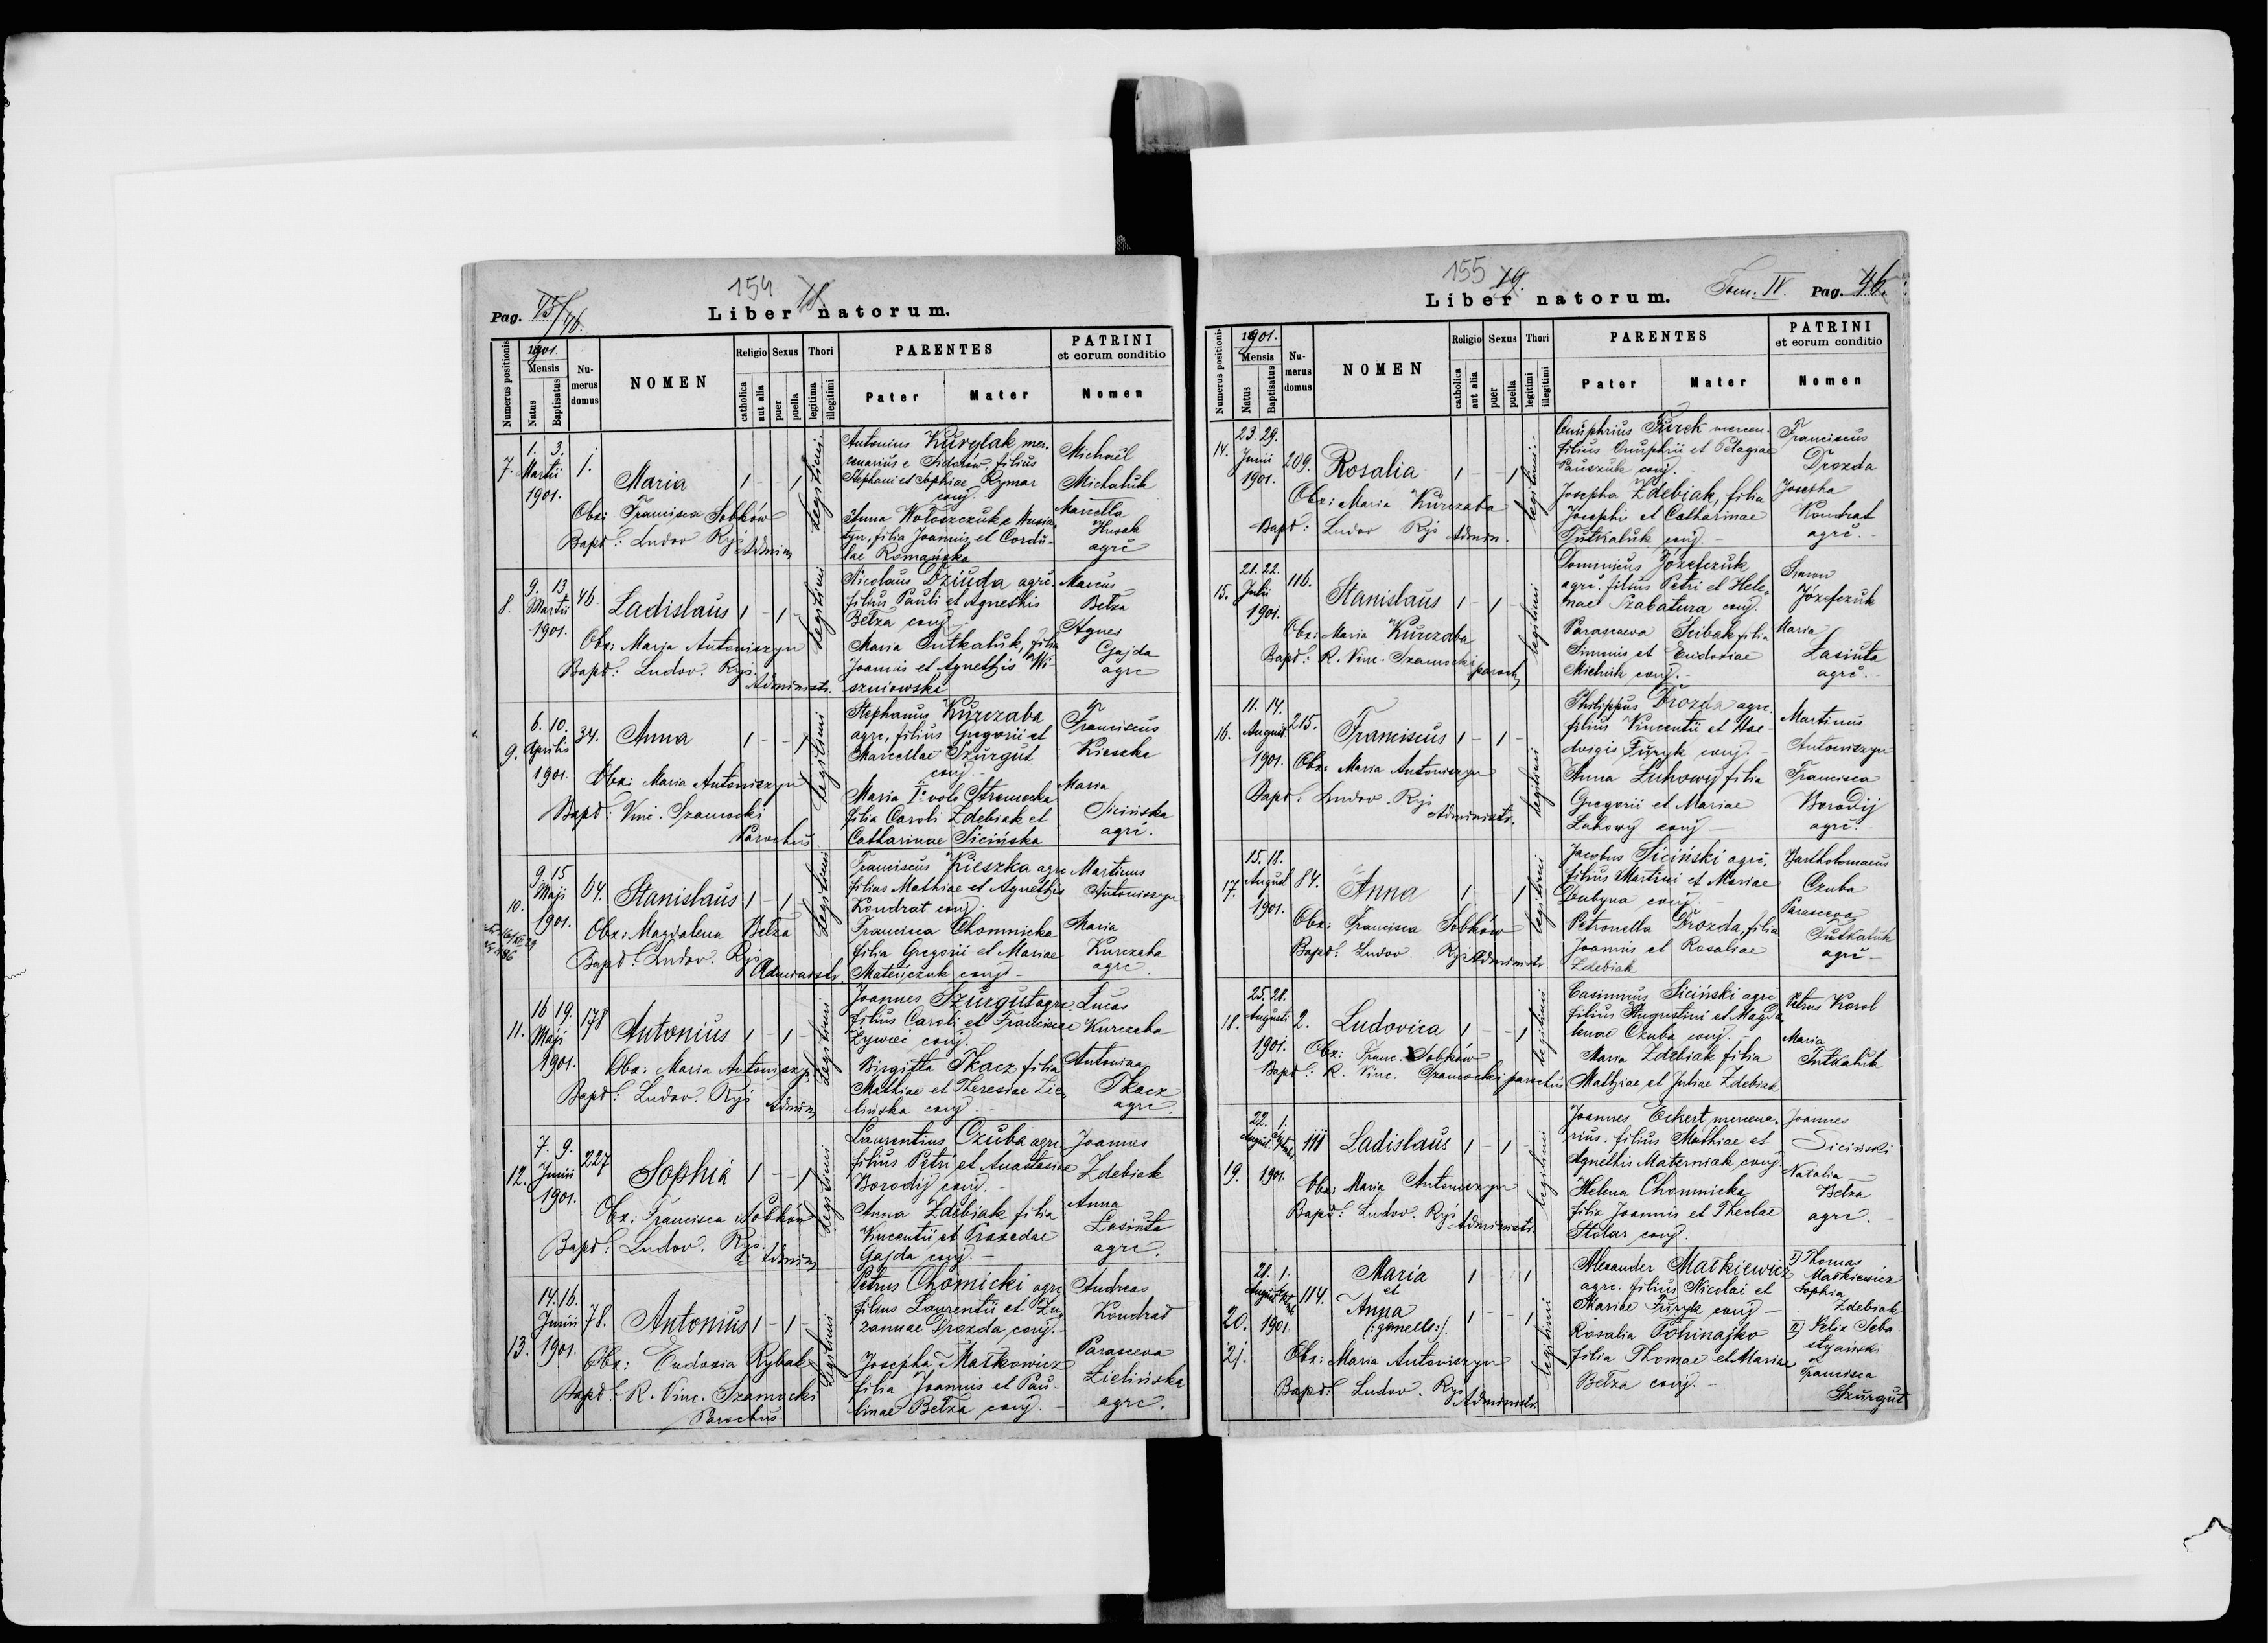 154 18.
Pag. 45/46.
Liber natorum.
Numerus positionis
1901.
Mensis
Natus
Baptisatus
Numerus domus
NOMEN
Religio
catholica
aut alia
Sexus
puer
puella
Thori
legitima
illegitimi
PARENTES
Pater
Mater
PATRINI
et eorum conditio
Nomen
7.
1. 3.
Martii
1901.
1.
Maria
1 - - 1
Legitimi
Obx: Francisca Sobków
Bapt: Ludov Ryś
Admin
Antonius Kurylak mer-
cenarius e Sidorów, filius
Stephani et Sophiae Rymar
conj.
Anna Wołoszczuk e Husia-
tyn, filia Joannis et Cordu-
lae Romańska
Michaël
Michaluk
Marcella
Husak
agrc
8.
9. 13
Martii
1901.
46.
Ladislaus
1 - 1 -
Legitimi
Obx: Marja Antoniszyn
Bapt: Ludov. Ryś.
Administr.
Nicolaus Dziuda agrc.
filius Pauli et Agnethis
Bełza conj.
Maria Tutkaluk, filia
Joannis et Agnethis Wi
szniowska
Marcus
Bełza
Agnes
Gajda
agrc
9.
6. 10.
Aprilis
1901.
34.
Anna
1 - - 1
Legitimi
Obx: Maria Antoniszyn
Bapt: Vinc. Szamocki
Parochus
Stephanus Kurczaba
agrc, filius Gregorii et
Marcellae Szurgut
conj.
Maria Iº voto Stremecka
filia Caroli Zdebiak et
Catharinae Sicińska
Franciscus
Kieszka
Maria
Sicińska
agrc.
10.
9. 15
Maji
1901.
64.
Stanislaus
1 - 1
Legitimi
Obx: Magdalena Bełza
Bapt: Ludov. Ryś
Administr.
Franciscus Kieszka agrc
filius Mathiae et Agnethis
Kondrat conj.
Francisca Chomnicka
filia Gregorii et Mariae
Mateńczuk conj -
Martinus
Antoniszyn
Maria
Kurczaba
agrc.
11.
16 19.
Maji
1901.
178
Antonius
1 - 1 -
Legitimi
Obx: Maria Antoniszyn
Bapt: Ludov. Ryś
Admin
Joannes Szurgut agrc.
filius Caroli et Franciscae
Żywiec conj.
Birgitta Tkacz filia
Mathiae et Theresiae Zie-
lińska conj
Lucas
Kurczaba
Antonina
Tkacz
agrc.
12.
7. 9.
Junii
1901.
227
Sophia
1 - - 1
Legitimi
Obx: Francisca Sobków
Bapt: Ludov. Ryś.
Admin
Laurentius Czuba agrc.
filius Petri et Anastasiae
Borodij conj. -
Anna Zdebiak filia
Vincentii et Praxedae
Gajda conj. -
Joannes
Zdebiak
Anna
Łasiuta
agrc.
13.
14. 16.
Junii
1901.
78.
Antonius
1 - 1 -
Legitimi
Obx: Eudoxia Rybak
Bapt: R. Vinc. Szamocki
Parochus.
Petrus Chomicki agrc
filius Laurentii et Zu-
zannae Drozda, conj. -
Josepha Małkowicz
filia Joannis et Pau-
linae Bełza conj. -
Andreas
Kondrad
Parasceva
Zielińska
agrc.
155 19.
Liber natorum.
Tom. IV. Pag. 46.
Numerus positionis
1901.
Mensis
Natus
Baptisatus
Numerus domus
NOMEN
Religio
catholica
aut alia
Sexus
puer
puella
Thori
legitimi
illegitimi
PARENTES
Pater
Mater
PATRINI
et eorum conditio
Nomen
14.
23. 29.
Junii
1901.
209.
Rosalia
1 - - 1
legitimi
Obx: Maria Kurczaba
Bapt: Ludov Ryś Admin.
Onuphrius Turek mercen.
filius Onuphrii et Pelagiae
Pauszuk conj. -
Josepha Zdebiak, filia
Josephi et Catharinae
Tutkaluk conj. -
Franciscus
Drozda
Josepha
Kondrat
agrc. -
15.
21. 22.
Julii
1901.
116.
Stanislaus
1 - 1 -
legitimi
Obx: Maria Kurczaba
Bapt: R. Vinc. Szamocki paroch
Dominicus Józefczuk
agrc. filius Petri et Hele-
nae Szabatura conj.
Parasceva Scibak filia
Simonis et Eudoxiae
Michnik conj. -
Simon
Józefczuk
Maria
Łasiuta
agrc. -
16.
11. 14.
Augusti
1901.
215.
Franciscus
1 - 1 -
legitimi
Obx: Maria Antoniszyn
Bapt: Ludov. Ryś
Administr.
Philippus Drozda agrc.
filius Vincentii et Hae-
dvigis Furyk conj. -
Anna Łuhowy filia
Gregorii et Mariae
Łuhowy conj -
Martinus
Antoniszyn
Francisca
Borodij
agrc.
17.
15. 18.
August
1901.
84.
Anna
1 - - 1
legitimi
Obx: Francisca Sobków
Bapt: Ludov. Ryś Administr.
Jacobus Siciński agrc.
filius Martini et Mariae
Dubyna conj. -
Petronella Drozda, filia
Joannis et Rosaliae
Zdebiak
Bartholomaeus
Czuba
Parasceva
Tutkaluk
agrc -
18.
25. 28.
Augusti
1901.
2.
Ludovica
1 - - 1
legitimi
Obx: Franc. Sobków
Bapt: R. Vinc. Szamocki parochus
Casimirus Siciński agrc
filius Augustini et Magda
lenae Czuba conj. -
Maria Zdebiak filia
Mathiae et Juliae Zdebiak
Petrus Karol
Maria
Tutkaluk
19.
22. 1.
August. Septemb.
1901.
111
Ladislaus
1 - 1 -
legitimi
Obx: Maria Antoniszyn
Bapt: Ludov. Ryś
Administr.
Joannes Eckert mercena-
rius. filius Mathiae et
Agnethis Materniak conj
Helena Chomnicka
filia Joannis et Theclae
Stolar conj.
Joannes
Siciński
Natalia
Bełza
agrc. -
20.
21.
28. 1.
August Septemb
1901.
114.
Maria
et
Anna
(:gemelle:).
1 - 1
1 - 1
legitimi
Obx: Maria Antoniszyn
Bapt: Ludov. Ryś Administr.
Alexander Małkiewicz
agrc. filius Nicolai et
Mariae Furyk conj -
Rosalia Pohinajko
filia Thomae et Mariae
Bełza conj. -
I) Thomas
Małkiewicz
Sophia
Zdebiak
II) Felix Seba-
styański
et
Francisca
Szurgut